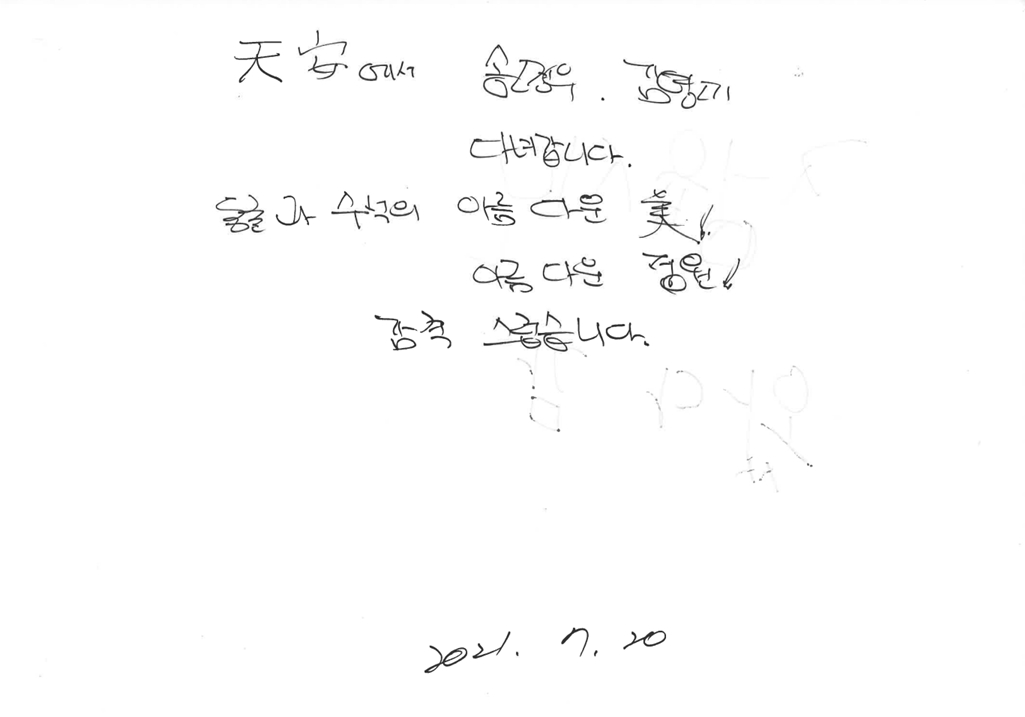 天安에서 송경우. 김형기
다녀갑니다.
동굴과 수석의 아름다운 美!
아름다운 정원!
감격 스럽습니다.
2021. 7. 20